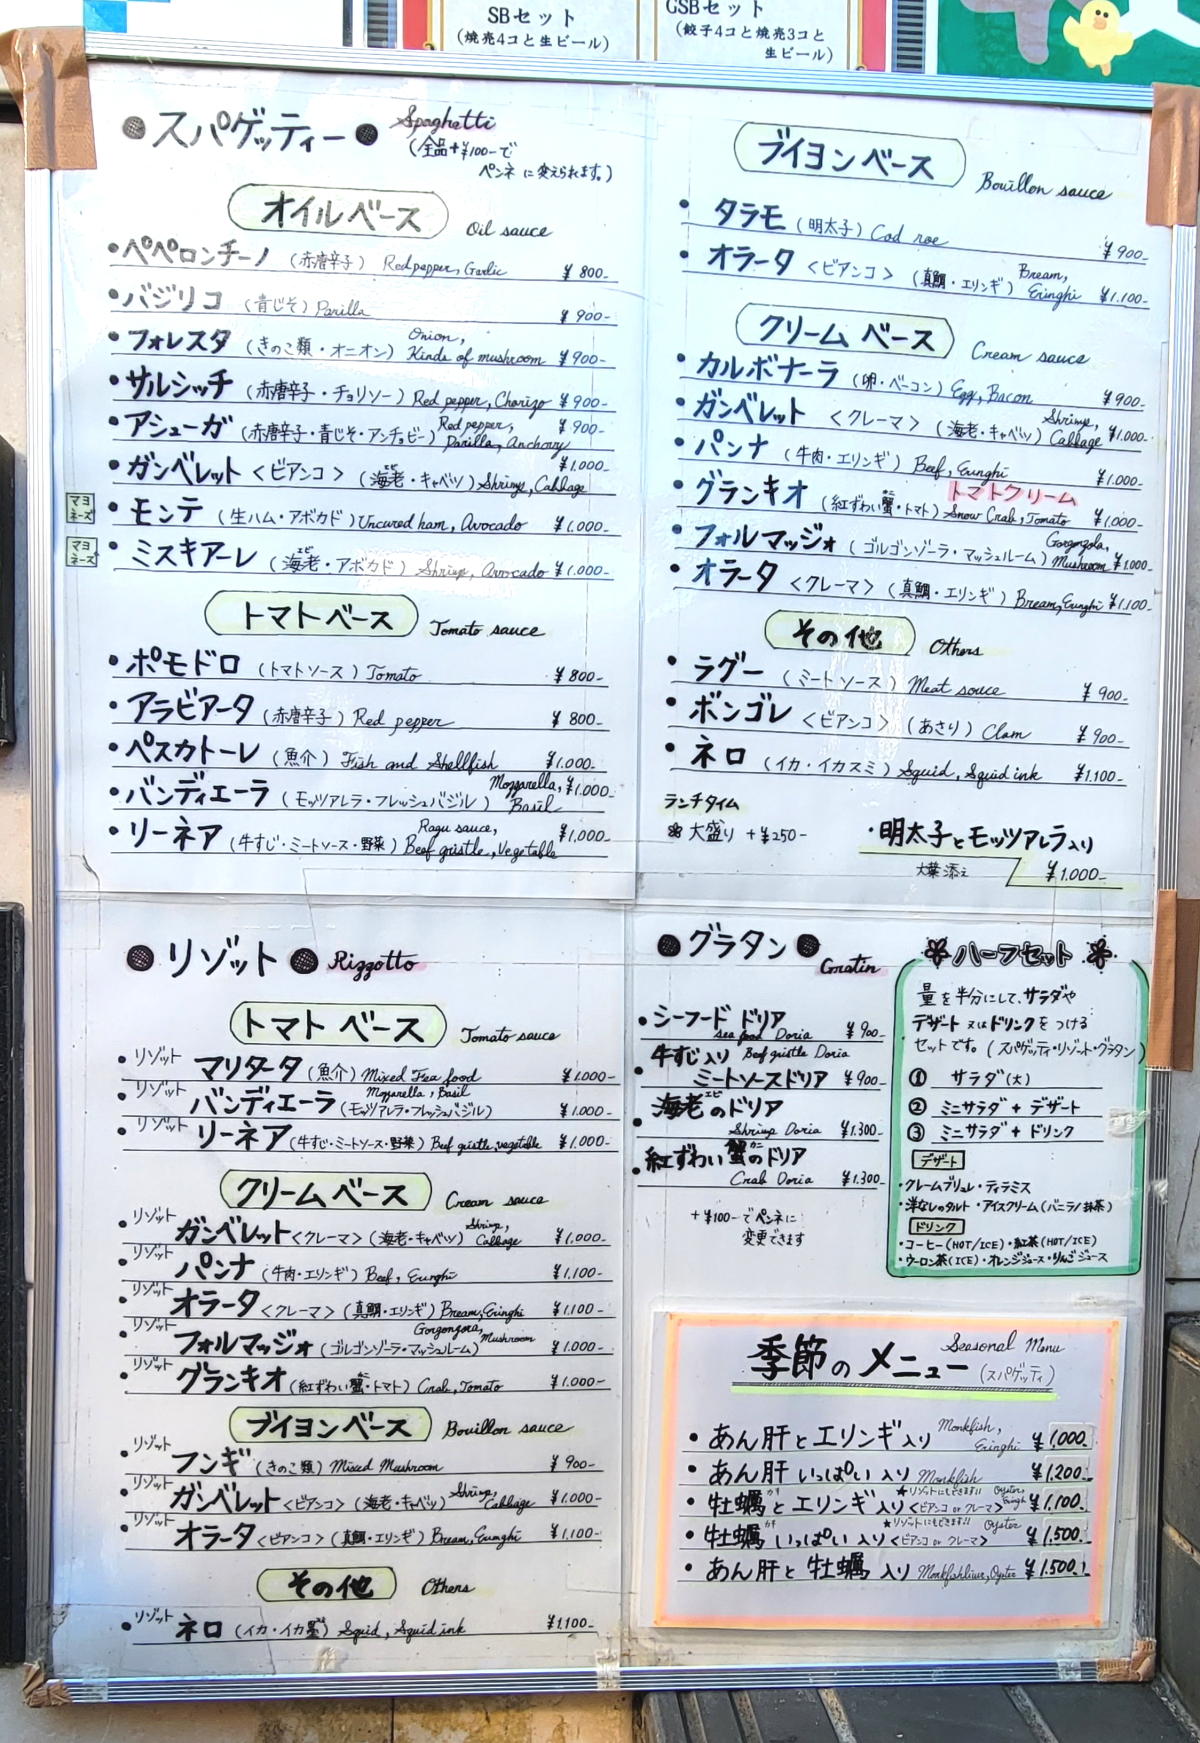 SBセット
(焼売4コと生ビール)
GSBセット
(餃子4コと焼売3コと
生ビール)
スパゲッティー
Spaghetti
(全品+¥100-で
ペンネに変えられます。)
オイルベース Oil sauce
・ペペロンチーノ (赤唐辛子) Red pepper, Garlic ¥800-
・バジリコ (青じそ) Parilla ¥900-
・フォレスタ (きのこ類・オニオン) Onion, Kinds of mushroom ¥900-
・サルシッチ (赤唐辛子・チョリソー) Red pepper, Chorizo ¥900-
・アシューガ (赤唐辛子・青じそ・アンチョビー) Red pepper, Parilla, Anchovy ¥900-
・ガンベレット <ビアンコ> (海老・キャベツ) Shrimp, Cabbage ¥1.000-
マヨネーズ ・モンテ (生ハム・アボカド) Uncured ham, Avocado ¥1.000-
マヨネーズ ・ミスキアーレ (海老・アボカド) Shrimp, Avocado ¥1.000-
トマトベース Tomato sauce
・ポモドロ (トマトソース) Tomato ¥800-
・アラビアータ (赤唐辛子) Red pepper ¥800-
・ペスカトーレ (魚介) Fish and Shellfish ¥1.000-
・バンディエーラ (モッツアレラ・フレッシュバジル) Mozzarella, Basil ¥1.000-
・リーネア (牛すじ・ミートソース・野菜) Ragu sauce, Beef gristle, Vegetable ¥1,000-
ブイヨンベース Bouillon sauce
・タラモ (明太子) Cod roe ¥900-
・オラータ <ビアンコ> (真鯛・エリンギ) Bream, Eringhi ¥1.100-
クリームベース Cream sauce
・カルボナーラ (卵・ベーコン) Egg, Bacon ¥900-
・ガンベレット <クレーマ> (海老・キャベツ) Shrimp, Cabbage ¥1.000-
・パンナ (牛肉・エリンギ) Beef, Eringhi ¥1.000-
・グランキオ (紅ずわい蟹・トマト) トマトクリーム Snow Crab, Tomato ¥1.000-
・フォルマッジォ (ゴルゴンゾーラ・マッシュルーム) Gorgonzola, Mushroom ¥1.000-
・オラータ <クレーマ> (真鯛・エリンギ) Bream, Eringhi ¥1.100-
その他 Others
・ラグー (ミートソース) Meat souce ¥900-
・ボンゴレ <ビアンコ> (あさり) Clam ¥900-
・ネロ (イカ・イカスミ) Squid, Squid ink ¥1.100-
ランチタイム
※大盛り +¥250-
・明太子とモッツアレラ入り
大葉添え ¥1.000-
リゾット Rizzotto
トマトベース Tomato sauce
・リゾット マリタータ (魚介) Mixed Sea food ¥1.000-
・リゾット バンディエーラ (モッツアレラ・フレッシュバジル) Mozzarella, Basil ¥1.000-
・リゾット リーネア (牛すじ・ミートソース・野菜) Beef gristle, vegetable ¥1.000-
クリームベース Cream sauce
・リゾット ガンベレット <クレーマ> (海老・キャベツ) Shrimp, Cabbage ¥1.000-
・リゾット パンナ (牛肉・エリンギ) Beef, Eringhi ¥1.100-
・リゾット オラータ <クレーマ> (真鯛・エリンギ) Bream, Eringhi ¥1.100-
・リゾット フォルマッジォ (ゴルゴンゾーラ・マッシュルーム) Gorgonzora, Mushroom ¥1.000-
・リゾット グランキオ (紅ずわい蟹・トマト) Crab, Tomato ¥1.000-
ブイヨンベース Bouillon sauce
・リゾット フンギ (きのこ類) Mixed Mushroom ¥900-
・リゾット ガンベレット <ビアンコ> (海老・キャベツ) Shrimp, Cabbage ¥1.000-
・リゾット オラータ <ビアンコ> (真鯛・エリンギ) Bream, Eringhi ¥1.100-
その他 Others
・リゾット ネロ (イカ・イカ墨) Squid, Squid ink ¥1.100-
グラタン Gratin
・シーフードドリア sea food Doria ¥900-
・牛すじ入り Beef gristle Doria
ミートソースドリア ¥900-
・海老のドリア
Shrimp Doria ¥1.300-
・紅ずわい蟹のドリア
Crab Doria ¥1.300-
+¥100-でペンネに
変更できます
ハーフセット
量を半分にして、サラダや
デザート又はドリンクをつける
セットです。(スパゲッティ・リゾット・グラタン)
① サラダ(大)
② ミニサラダ + デザート
③ ミニサラダ + ドリンク
デザート
・クレームブリュレ・ティラミス
・洋なしのタルト・アイスクリーム(バニラ/抹茶)
ドリンク
・コーヒー(HOT/ICE)・紅茶(HOT/ICE)
・ウーロン茶(ICE)・オレンジジュース・りんごジュース
季節のメニュー Seasonal Menu
(スパゲッティ)
・あん肝とエリンギ入り Monkfish, Eringhi ¥1,000-
・あん肝いっぱい入り Monkfish ¥1.200-
★リゾットにもできます!!
・牡蠣とエリンギ入り <ビアンコ or クレーマ> Oyster, Eringhi ¥1.100-
★リゾットにもできます!!
・牡蠣いっぱい入り <ビアンコ or クレーマ> Oyster ¥1.500-
・あん肝と牡蠣入り Monkfishliver, Oyster ¥1.500-